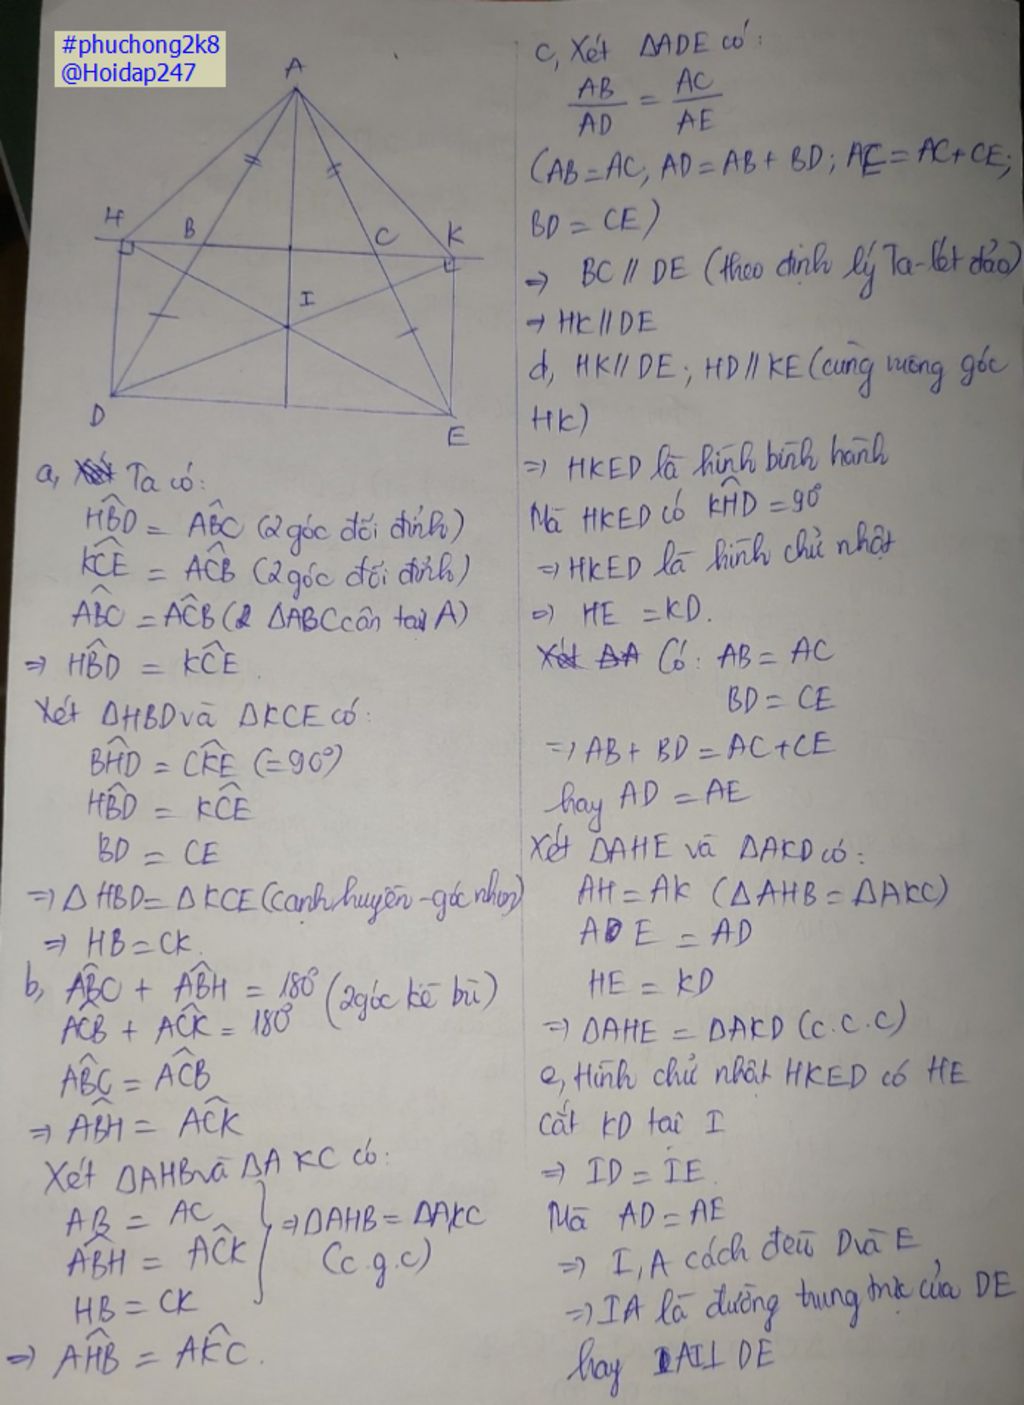 #phuchong2k8
@Hoidap247
A
H
B
C
K
I
D
E
a, Ta có:
HBD̂ = ABĈ (2 góc đối đỉnh)
KCÊ = ACB̂ (2 góc đối đỉnh)
ABĈ = ACB̂ (ΔABC cân tại A)
=> HBD̂ = KCÊ.
Xét ΔHBD và ΔKCE có:
BHD̂ = CKÊ (=90°)
HBD̂ = KCÊ
BD = CE
=> ΔHBD = ΔKCE (cạnh huyền - góc nhọn)
=> HB = CK.
b, ABĈ + ABĤ = 180° (2 góc kề bù)
ACB̂ + ACK̂ = 180°
ABĈ = ACB̂
=> ABĤ = ACK̂
Xét ΔAHB và ΔAKC có:
AB = AC
ABĤ = ACK̂ => ΔAHB = ΔAKC
HB = CK (c.g.c)
=> AHB̂ = AKĈ.
c, Xét ΔADE có:
AB/AD = AC/AE
(AB = AC; AD = AB + BD; AE = AC + CE;
BD = CE)
=> BC // DE (theo định lý Ta-lét đảo)
=> HK // DE
d, HK // DE; HD // KE (cùng vuông góc
HK)
=> HKED là hình bình hành
Mà HKED có KHD̂ = 90°
=> HKED là hình chữ nhật
=> HE = KD.
Có: AB = AC
BD = CE
=> AB + BD = AC + CE
hay AD = AE
Xét ΔAHE và ΔAKD có:
AH = AK (ΔAHB = ΔAKC)
AE = AD
HE = KD
=> ΔAHE = ΔAKD (c.c.c)
e, Hình chữ nhật HKED có HE
cắt KD tại I
=> ID = IE.
Mà AD = AE
=> I, A cách đều D và E
=> IA là đường trung trực của DE
hay AI ⊥ DE